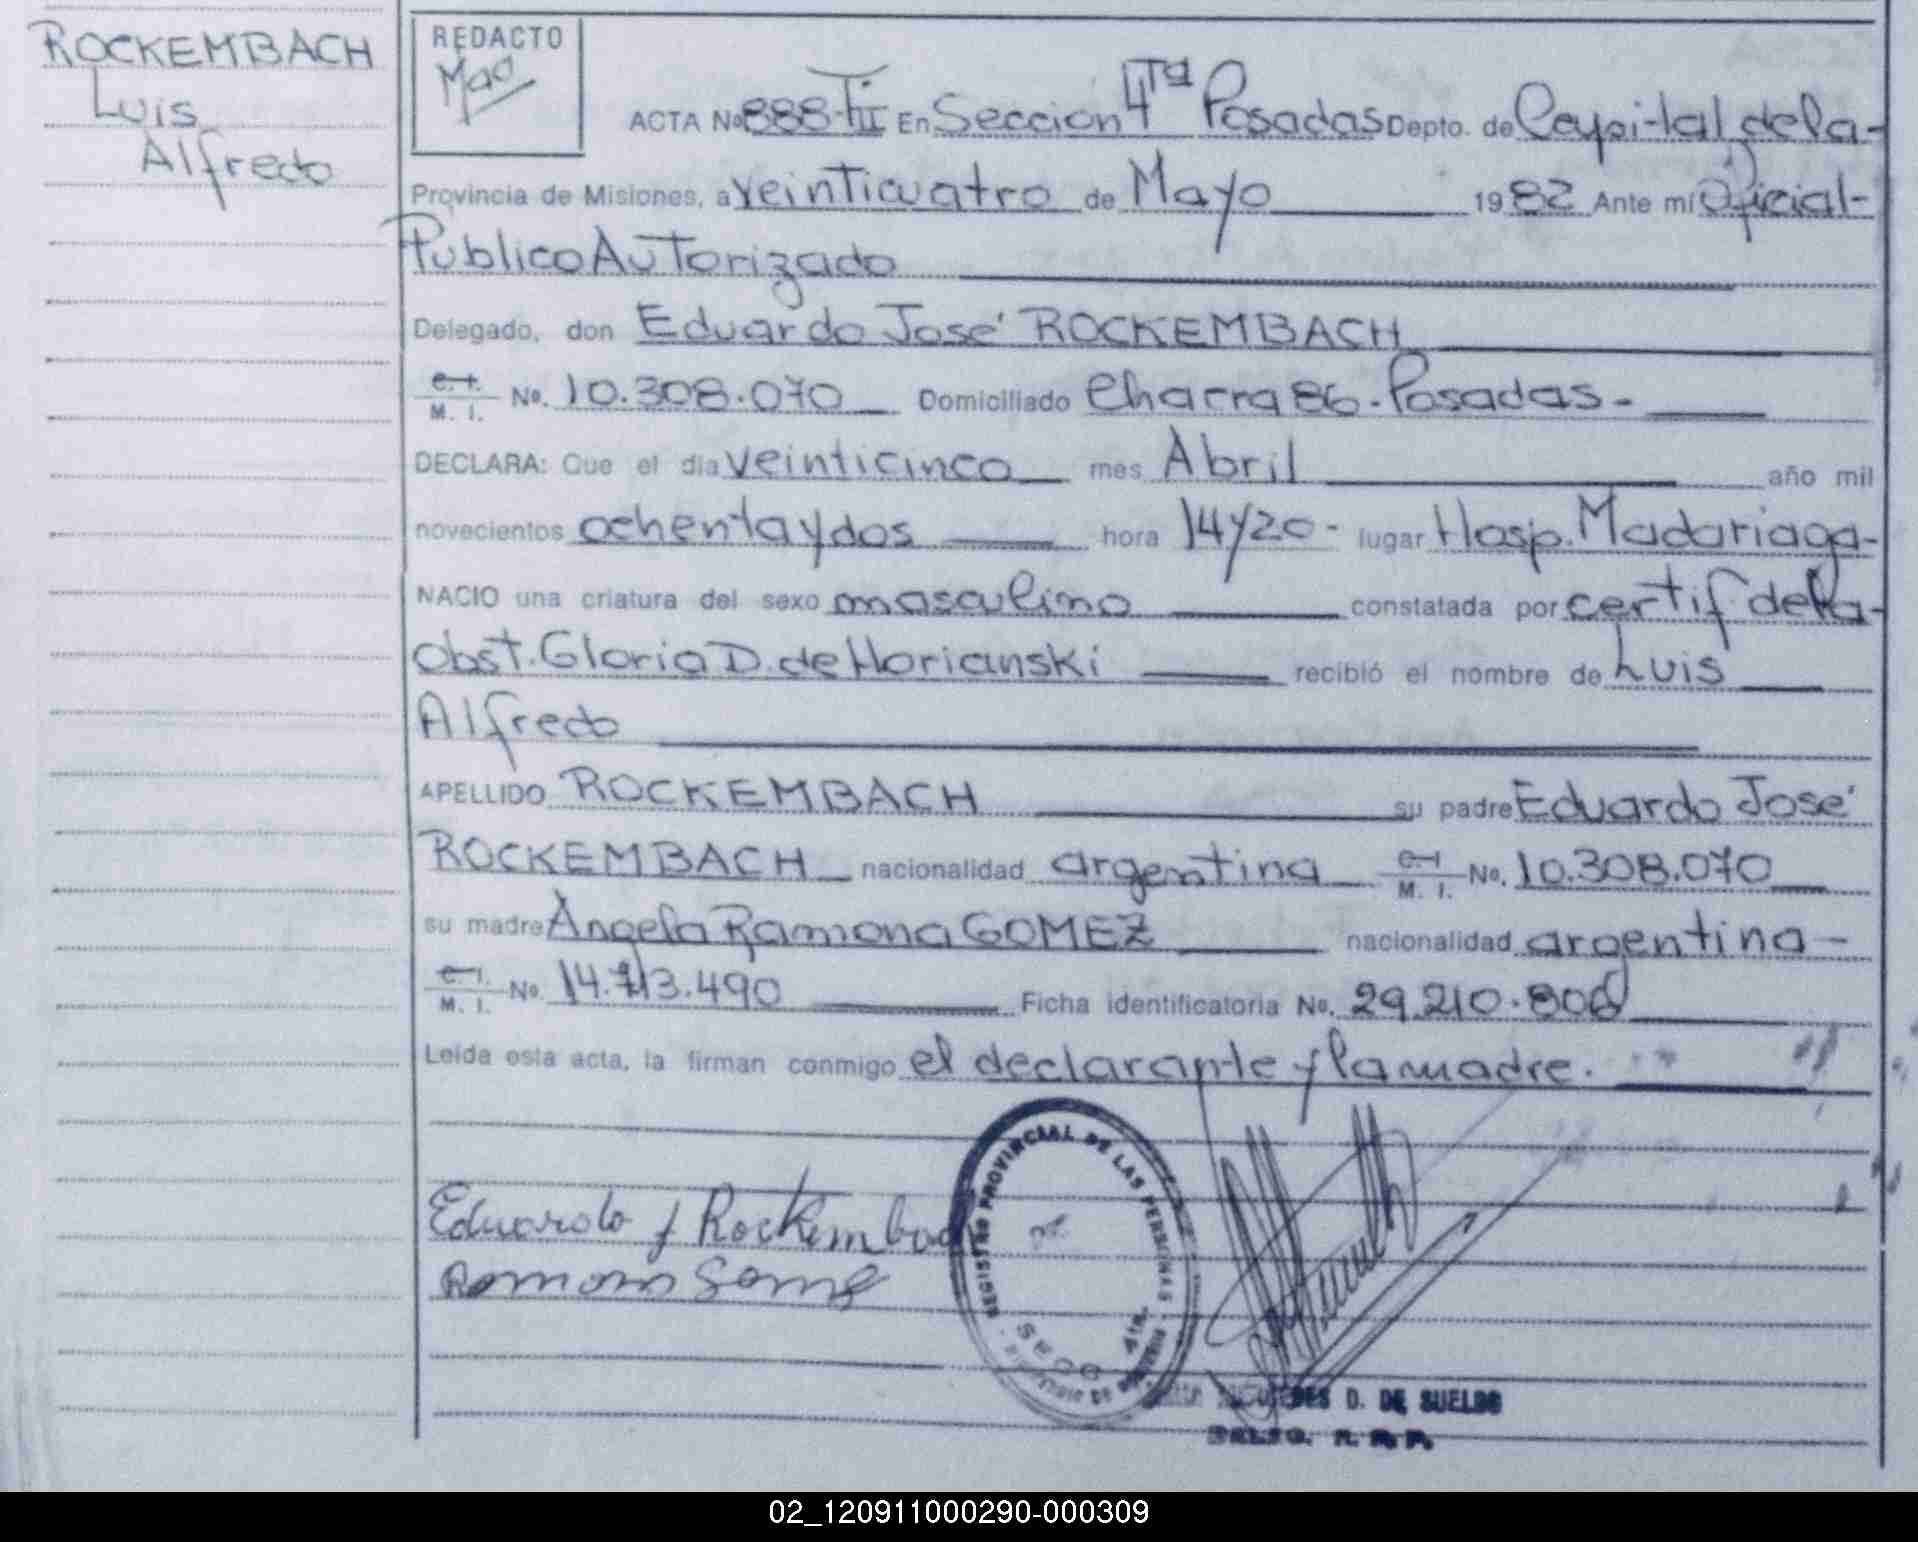 ROCKEMBACH
Luis
Alfredo
REDACTO
ACTA Nº 888-TII En Seccion 4Ta Posadas Depto. de Capital de la-
Provincia de Misiones, a veinticuatro de Mayo 1982 Ante mí Oficial-
Publico Autorizado
Delegado, don Eduardo José ROCKEMBACH
M. I. Nº. 10.308.070 Domiciliado Chacra 86-Posadas-
DECLARA: Que el día veinticinco mes Abril año mil
novecientos ochenta y dos hora 14y20- lugar Hosp. Madariaga-
NACIO una criatura del sexo masculino constatada por certif de la-
Obst. Gloria D. de Horianski recibió el nombre de Luis
Alfredo
APELLIDO ROCKEMBACH su padre Eduardo José
ROCKEMBACH nacionalidad argentina M. I. Nº. 10.308.070
su madre Angela Ramona GOMEZ nacionalidad argentina-
M. I. Nº. 14.713.490 Ficha identificatoria Nº. 29.210.808
Leída esta acta, la firman conmigo el declarante y la madre.
REGISTRO PROVINCIAL DE LAS PERSONAS
4ta.
Eduardo J Rockembach
Ramona Gome
D. DE SUELDO
02_120911000290-000309